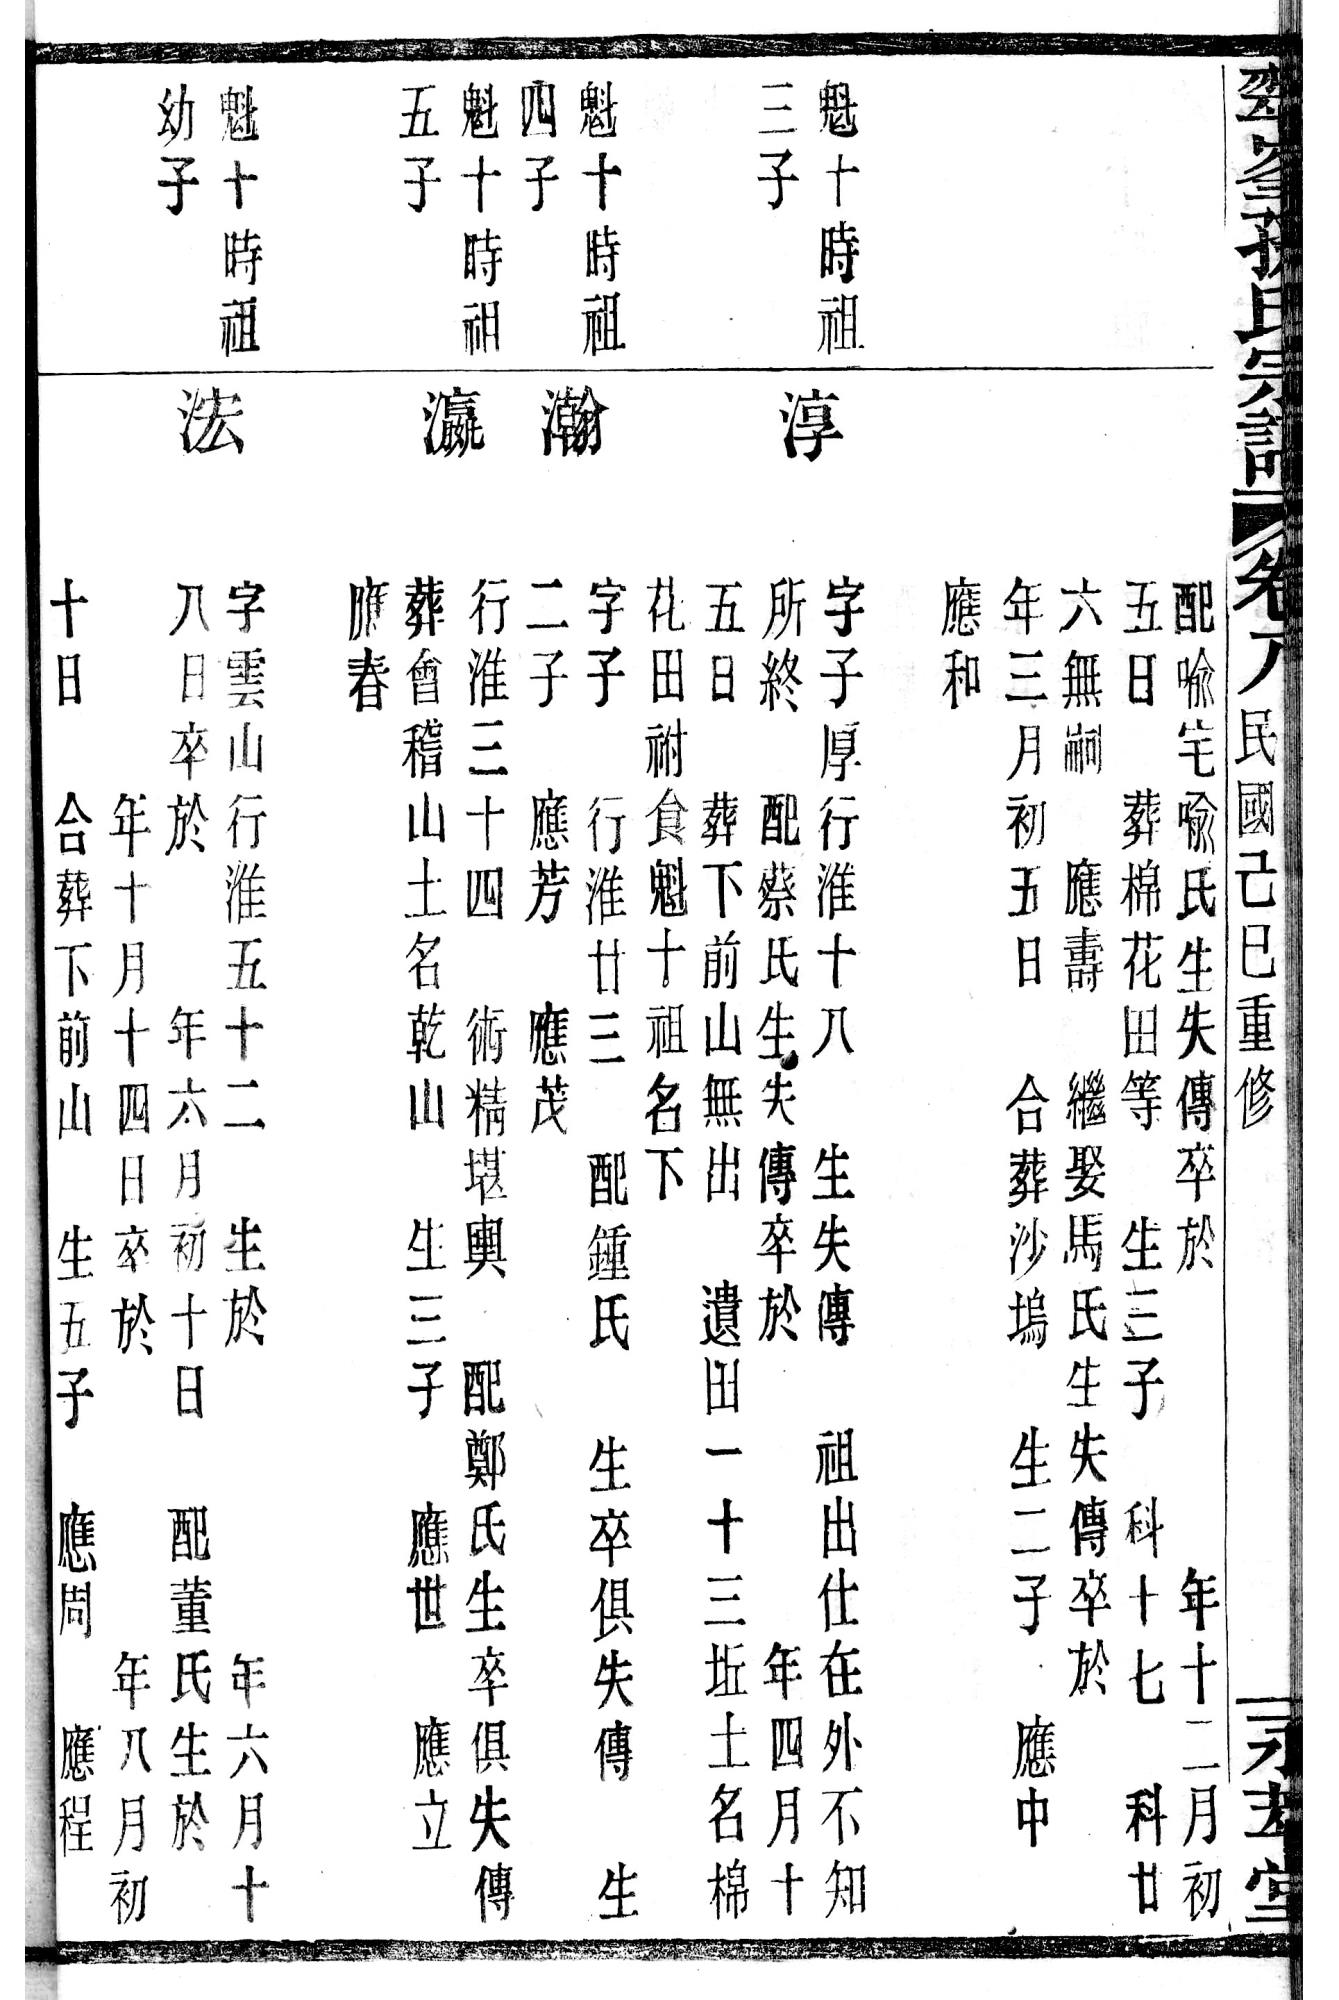 孫氏宗譜 卷八 民國己巳重修 永 堂
配喩宅喩氏生失傳卒於 年十二月初
五日 葬棉花田等 生三子 科十七 科廿
六無嗣 應壽 繼娶馬氏生失傳卒於
年三月初五日 合葬沙塢 生二子 應中
應和
魁十時祖
三子
淳
字子厚行淮十八 生失傳 祖出仕在外不知
所終 配蔡氏生失傳卒於 年四月十
五日 葬下前山無出 遺田一十三坵土名棉
花田祔食魁十祖名下
魁十時祖
四子
瀚
字子 行淮廿三 配鍾氏 生卒俱失傳 生
二子 應芳 應茂
魁十時祖
五子
瀛
行淮三十四 術精堪輿 配鄭氏生卒俱失傳
葬會稽山土名乾山 生三子 應世 應立
應春
魁十時祖
幼子
浤
字雲山行淮五十二 生於 年六月十
八日卒於 年六月初十日 配董氏生於
年十月十四日卒於 年八月初
十日 合葬下前山 生五子 應周 應程